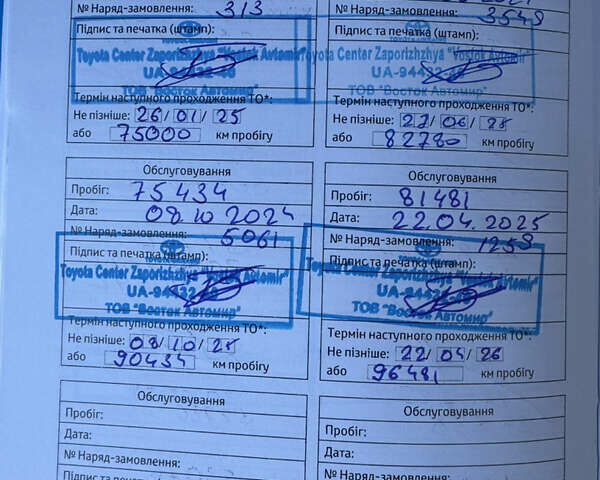 № Наряд-замовлення: 313
Підпис та печатка (штамп):
Toyota Center Zaporizhzhya "Vostok Avtomir"
ТОВ "Восток Автомир"
Термін наступного проходження ТО*:
Не пізніше: 26/01/25
або 75000 км пробігу
№ Наряд-замовлення: 3549
Підпис та печатка (штамп):
Toyota Center Zaporizhzhya "Vostok Avtomir"
ТОВ "Восток Автомир"
Термін наступного проходження ТО*:
Не пізніше: 22/06/25
або 82780 км пробігу
Обслуговування
Пробіг: 75434
Дата: 08.10 2024
№ Наряд-замовлення: 5061
Підпис та печатка (штамп):
TOYOTA
Toyota Center Zaporizhzhya "Vostok Avtomir"
ТОВ "Восток Автомир"
Термін наступного проходження ТО*:
Не пізніше: 08/10/25
або 90434 км пробігу
Обслуговування
Пробіг: 81481
Дата: 22.04.2025
№ Наряд-замовлення: 1259
Підпис та печатка (штамп):
Toyota Center Zaporizhzhya "Vostok Avtomir"
ТОВ "Восток Автомир"
Термін наступного проходження ТО*:
Не пізніше: 22/04/26
або 96481 км пробігу
Обслуговування
Пробіг:
Дата:
№ Наряд-замовлення:
Підпис та печатка (штамп):
Обслуговування
Пробіг:
Дата:
№ Наряд-замовлення: